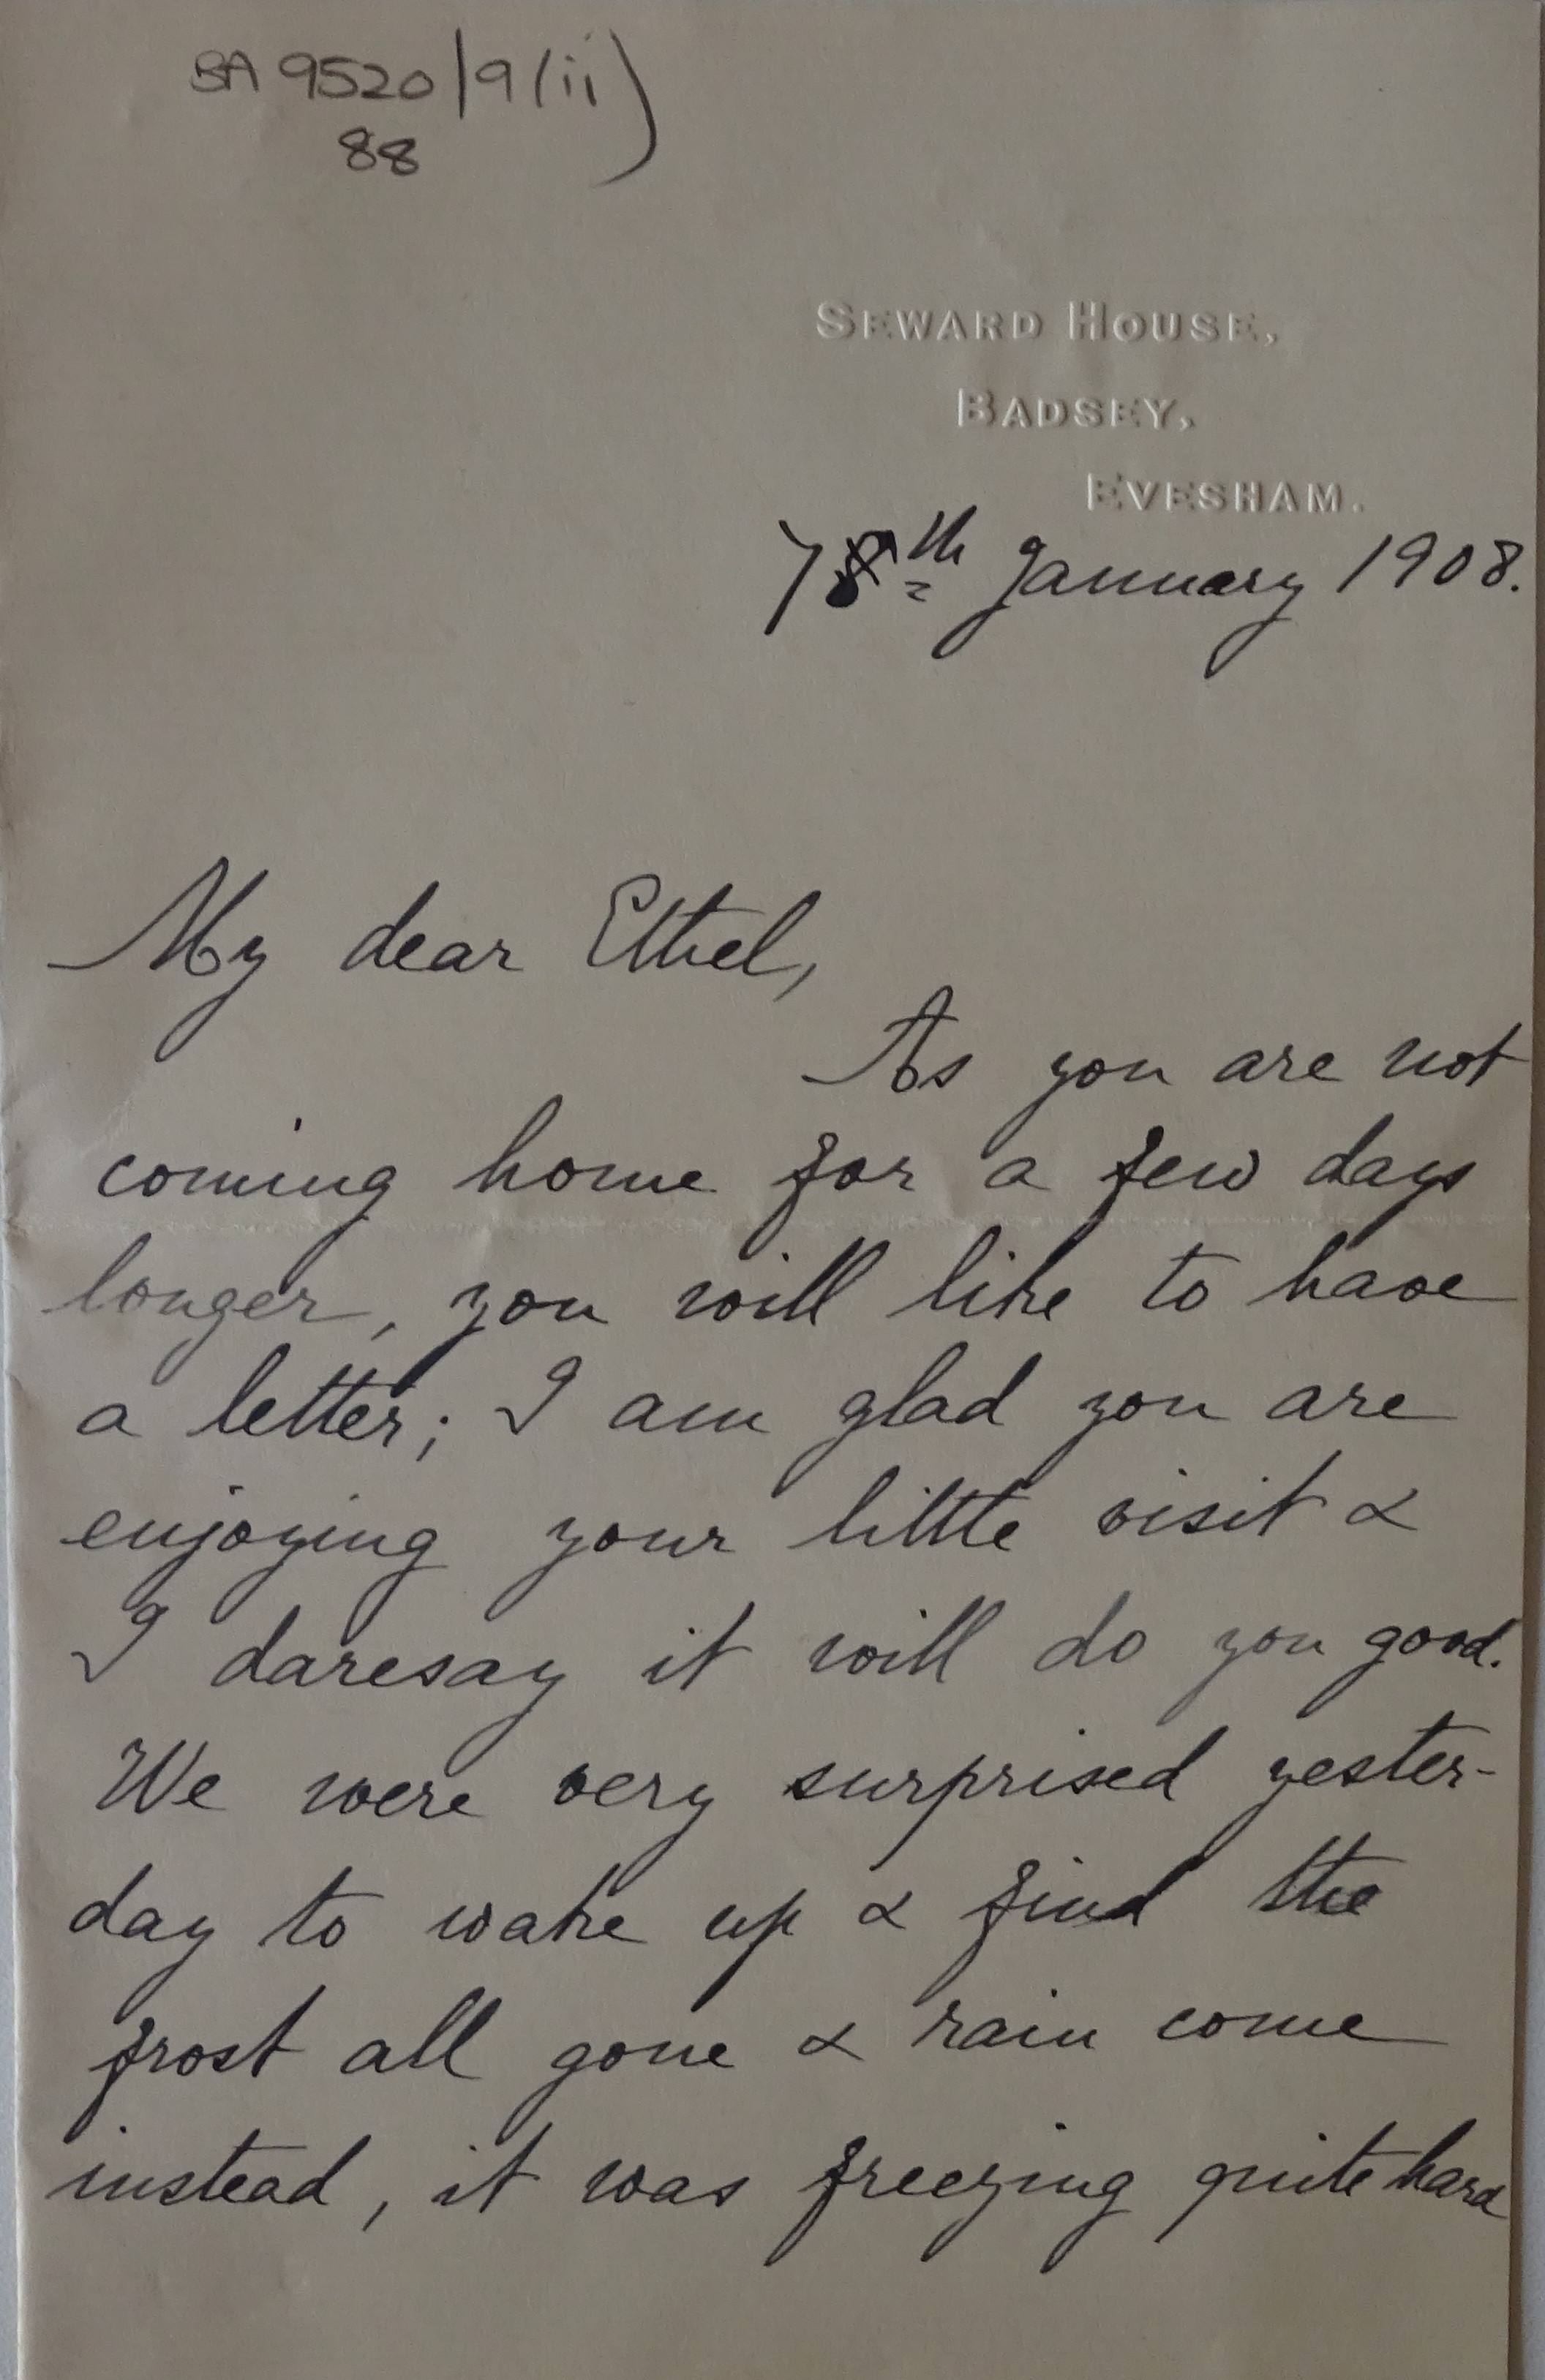 BA 9520/9(ii)
88
SEWARD HOUSE,
BADSEY,
EVESHAM.
7th January 1908.
My dear Ethel,
As you are not
coming home for a few days
longer, you will like to have
a letter; I am glad you are
enjoying your little visit &
I daresay it will do you good.
We were very surprised yester-
day to wake up & find the
frost all gone & rain come
instead, it was freezing quite hard